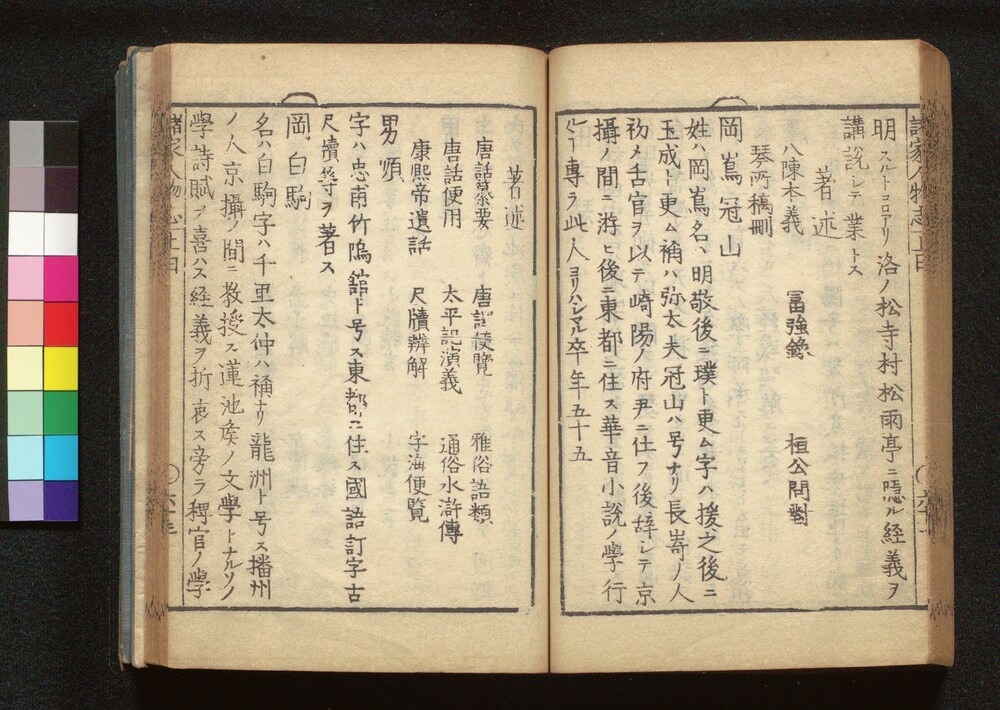 諸家人物志上四
明スルトコロアリ洛ノ松寺村松雨亭ニ隠ル経義ヲ
講説シテ業トス
著述
八陳本義 冨強錄 桓公問對
琴所稿刪
岡嶌冠山
姓ハ岡嶌名ハ明敬後ニ璞ト更ム字ハ援之後ニ
玉成ト更ム稱ハ弥太夫冠山ハ号ナリ長嵜ノ人
初メ舌官ヲ以テ崎陽ノ府尹ニ仕フ後辞シテ京
攝ノ間ニ游ヒ後ニ東都ニ住ス華音小説ノ學行
ルヽヿ專ラ此人ヨリハシマル卒年五十五
著述
唐話纂要 唐話便覽 雅俗語類
唐話便用 太平記演義 通俗水滸傳
康熙帝遺話 尺牘辨解 字海便覽
男順
字ハ忠甫竹隝舘ト号ス東都ニ住ス國語訂字古
尺牘等ヲ著ス
岡白駒
名ハ白駒字ハ千里太仲ハ稱ナリ龍洲ト号ス播州
ノ人京攝ノ間ニ教授ス蓮池矦ノ文學トナルソノ
學詩賦ヲ喜ハス経義ヲ折衷ス旁ラ稗官ノ學
諸家人物志上四